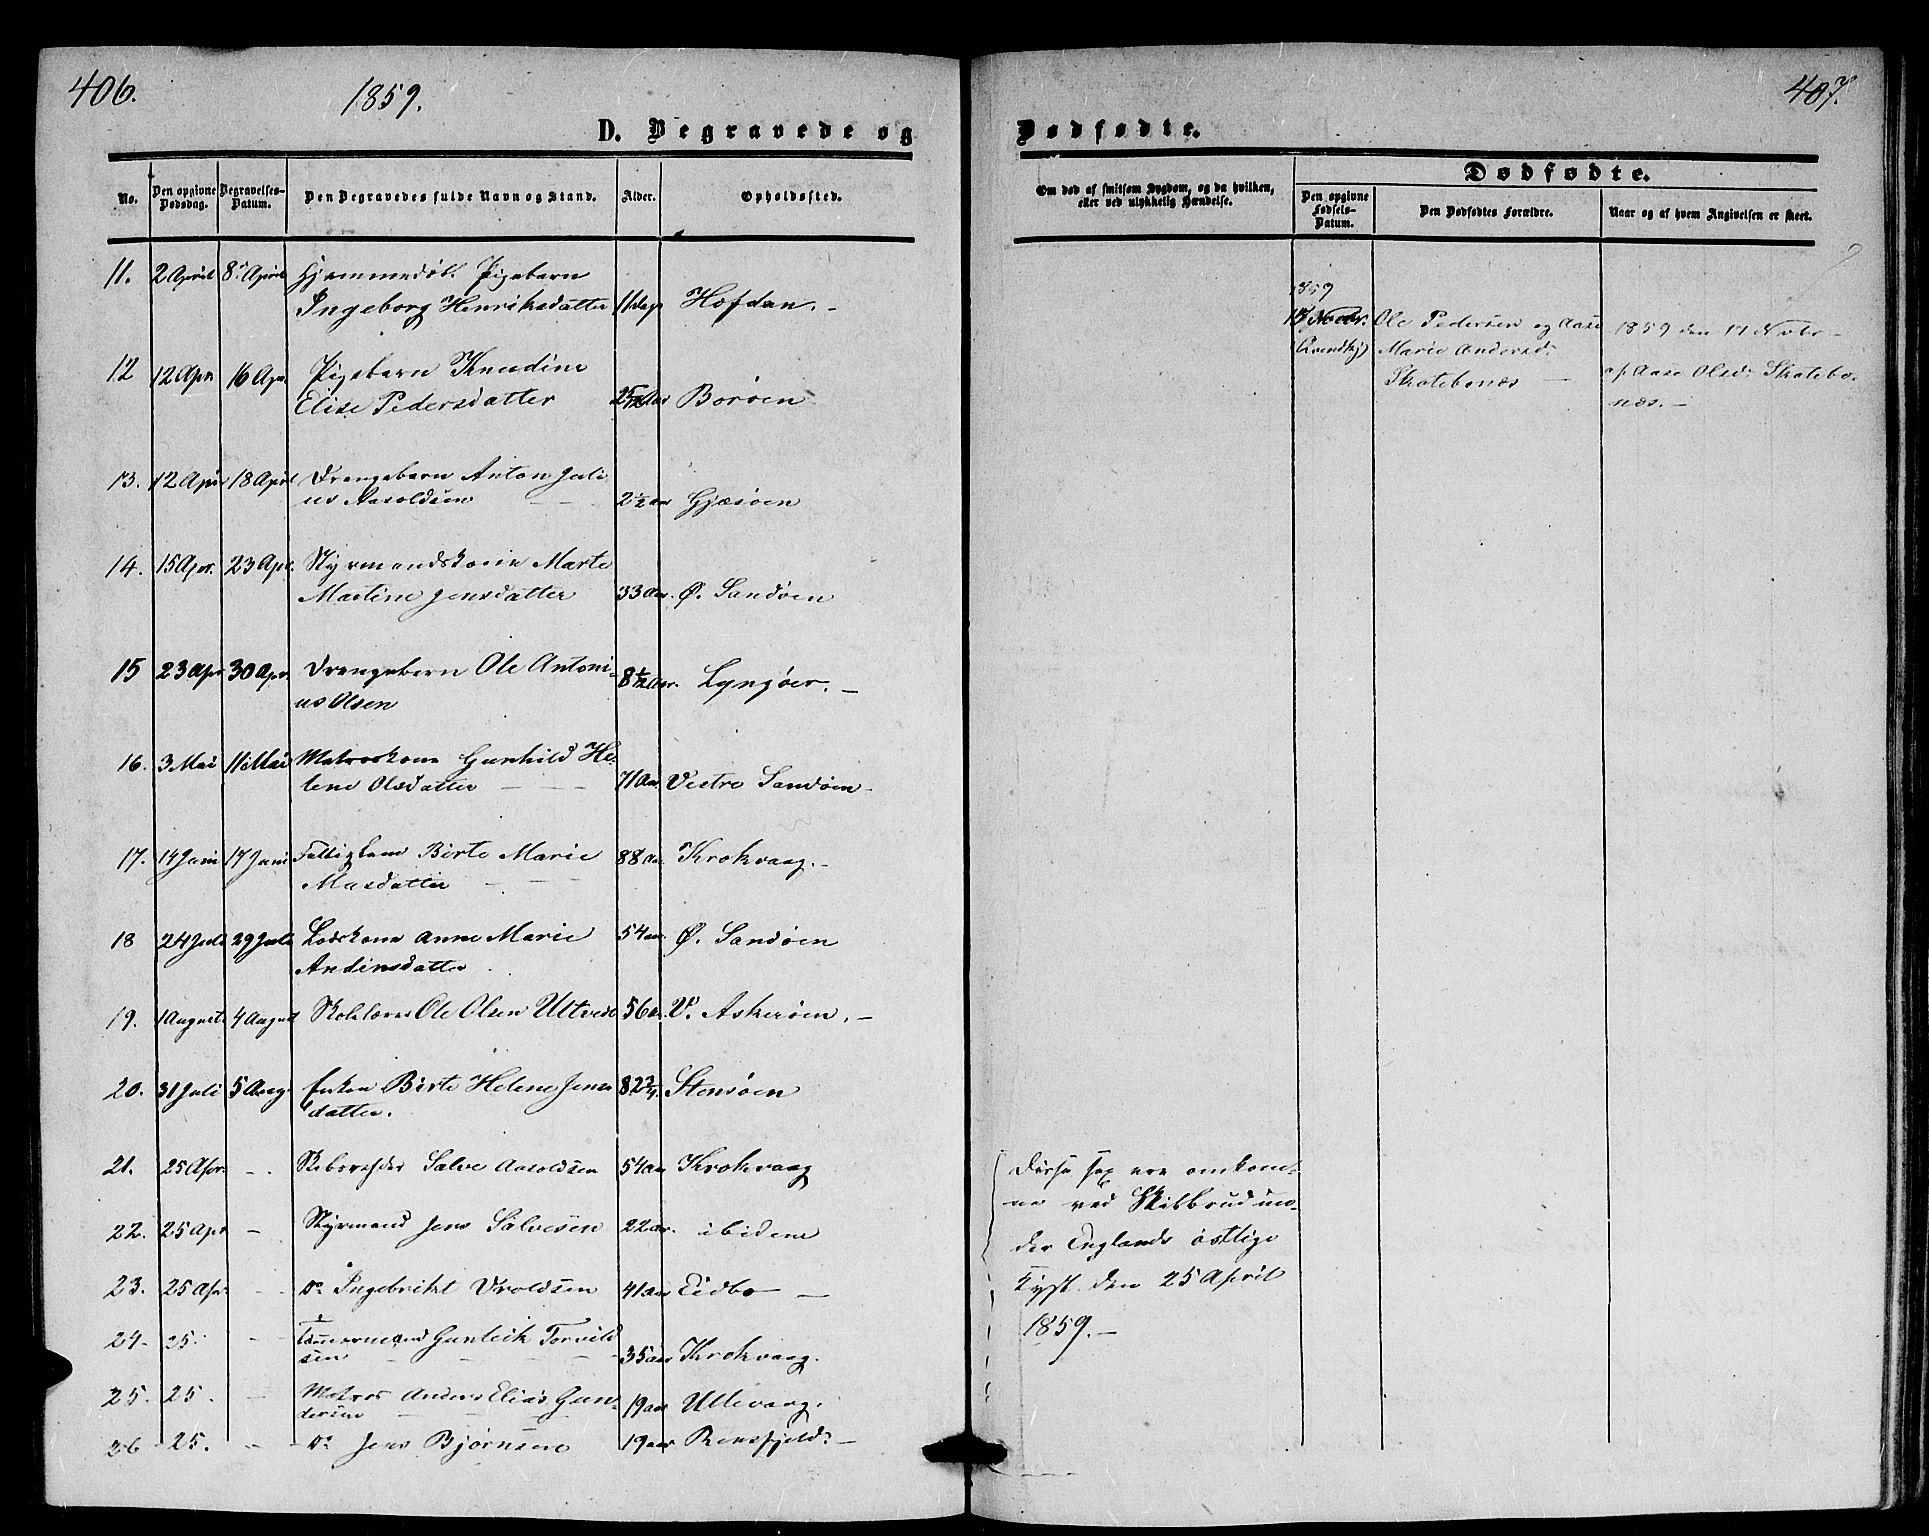 406.
1859.
D. Begravede og
No.
Den opgivne Dødsdag.
Begravelses-Datum.
Den Begravedes fulde Navn og Stand.
Alder.
Opholdssted.
11. 2 April 8 April Hjemmedøbt Pigebarn
Ingeborg Henriksdatter 11 Dage Hofdan. -
12 12 Apr 16 Apr. Pigebarn Knudine
Elise Pedersdatter Aar Borøen
13. 12 Apr 18 April Drengebarn Anton Juli
us Aasoldsen 2½ aar Gjæsøen
14. 15 Apr. 23 Apr. Styrmandskone Marte
Martine Jensdatter 33 Aar. Ø. Sandøen
15 23 Apr 30 Apr. Drengebarn Ole Antoni-
us Olsen 8½ Aar. Lyngøer. -
16. 3 Mai 11 Mai Matroskone Gunhild He-
lene Olsdatter 71 Aar Vestre Sandøen -
17. 14 Juni 17 Juni Fattiglem Birte Marie
Masdatter 88 Aar Krokvaag. -
18 24 Juli 29 Juli Lodskone Anne Marie
Andinsdatter 54 aar. Ø. Sandøen
19. 1 August 4 August Skolelærer Ole Olsen Ultvedt 56 a. V. Askerøen. -
20. 31 Juli 5 Aug. Enken Birte Helene Jens
datter. 82¾. Stensøen
21. 25 Apr. - . Skibsreder Salve Aasoldsen 54 aar Krokvaag
22. 25 Apr - Styrmand Jens Salvesen 22 aar. ibidem
23. 25 Apr. - Do Ingebrikt Vroldsen 41 aar Eidbo -
24- 25. - Tømmermand Gunleik Torvild
sen 35 aar Krokvaag.
25. 25. - Matros Anders Elias Gun-
dersen 19 aar Ullevaag.
26 25. - Do Jens Bjørnsen 19 aar Rensfjeld. -
407.
Dødfødte.
Om død af smitsom Sygdom, og da hvilken,
eller ved ulykkelig Hændelse.
Dødfødte.
Den opgivne Fødsels-Datum.
Den Dødfødtes Forældre.
Naar og af hvem Angivelsen er skeet.
1859
Novbr. Ole Pedersen og Aase 1859 den 17 Novbr -
Marie Andersd. af Aase Olsd. Skatebo-
Skatebonæs - næs. -
Disse sex ere omkom-
ne ved Skibbrud un-
der Englands østlige
Kyst den 25 April
1859. -